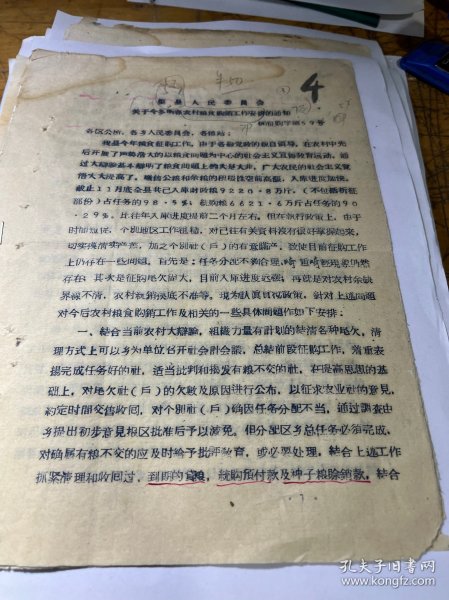 4
县人民委员会
关于今冬明春农村粮食购销工作安排的通知
字第59号
各区公所，各乡人民委员会，各粮站：
我县今年粮食征购工作，由于各级党政的亲自领导，在农村中先
后开展了声势浩大的以粮食问题为中心的社会主义宣传教育运动，通
过大辩论基本辩明了粮食问题上的大是大非，广大农民的社会主义觉
悟大大提高了，
截止11月底全县共已入库
份）占任务的98·5%；6621·6万斤占任务的90
·29%。比往年入库进度提前二个月左右，但在执行政策上，由于
时间短促，个别地区工作粗糙，对已往有关资料没有很好掌握起来，
上仍存在一些问题，首先是：任务分配不够合理，
存在；其次是征购尾欠面大，目前入库进度迟缓，再就是对农村余缺
界线不清，农村统销摸底不准等，现为认真贯彻政策，针对上述问题
对今后农村粮食购销工作及相关的一些具体问题作如下安排：
一、结合当前农村大辩论，组织力量有计划的结清各种尾欠，清
理方式上可以乡为单位召开社会计会议，总结前段征购工作，着重表
扬完成任务好的社，适当批判和揭发有粮不交的社，在提高思想的基
础上，对尾欠社（户）的欠数及原因进行公布，以征求农业社的意见，
约定时间交售收回，对个别社（户）确因任务分配不当，通过调查由
乡提出初步意见报区批准后予以减免。但分配区乡总任务必须完成，
对确属有粮不交的应及时给予批评教育，或必要处理，结合上述工作
抓紧清理和收回过，到期的，统购预付款及种子粮赊销款，结合
孔夫子旧书网
www.kongfz.com